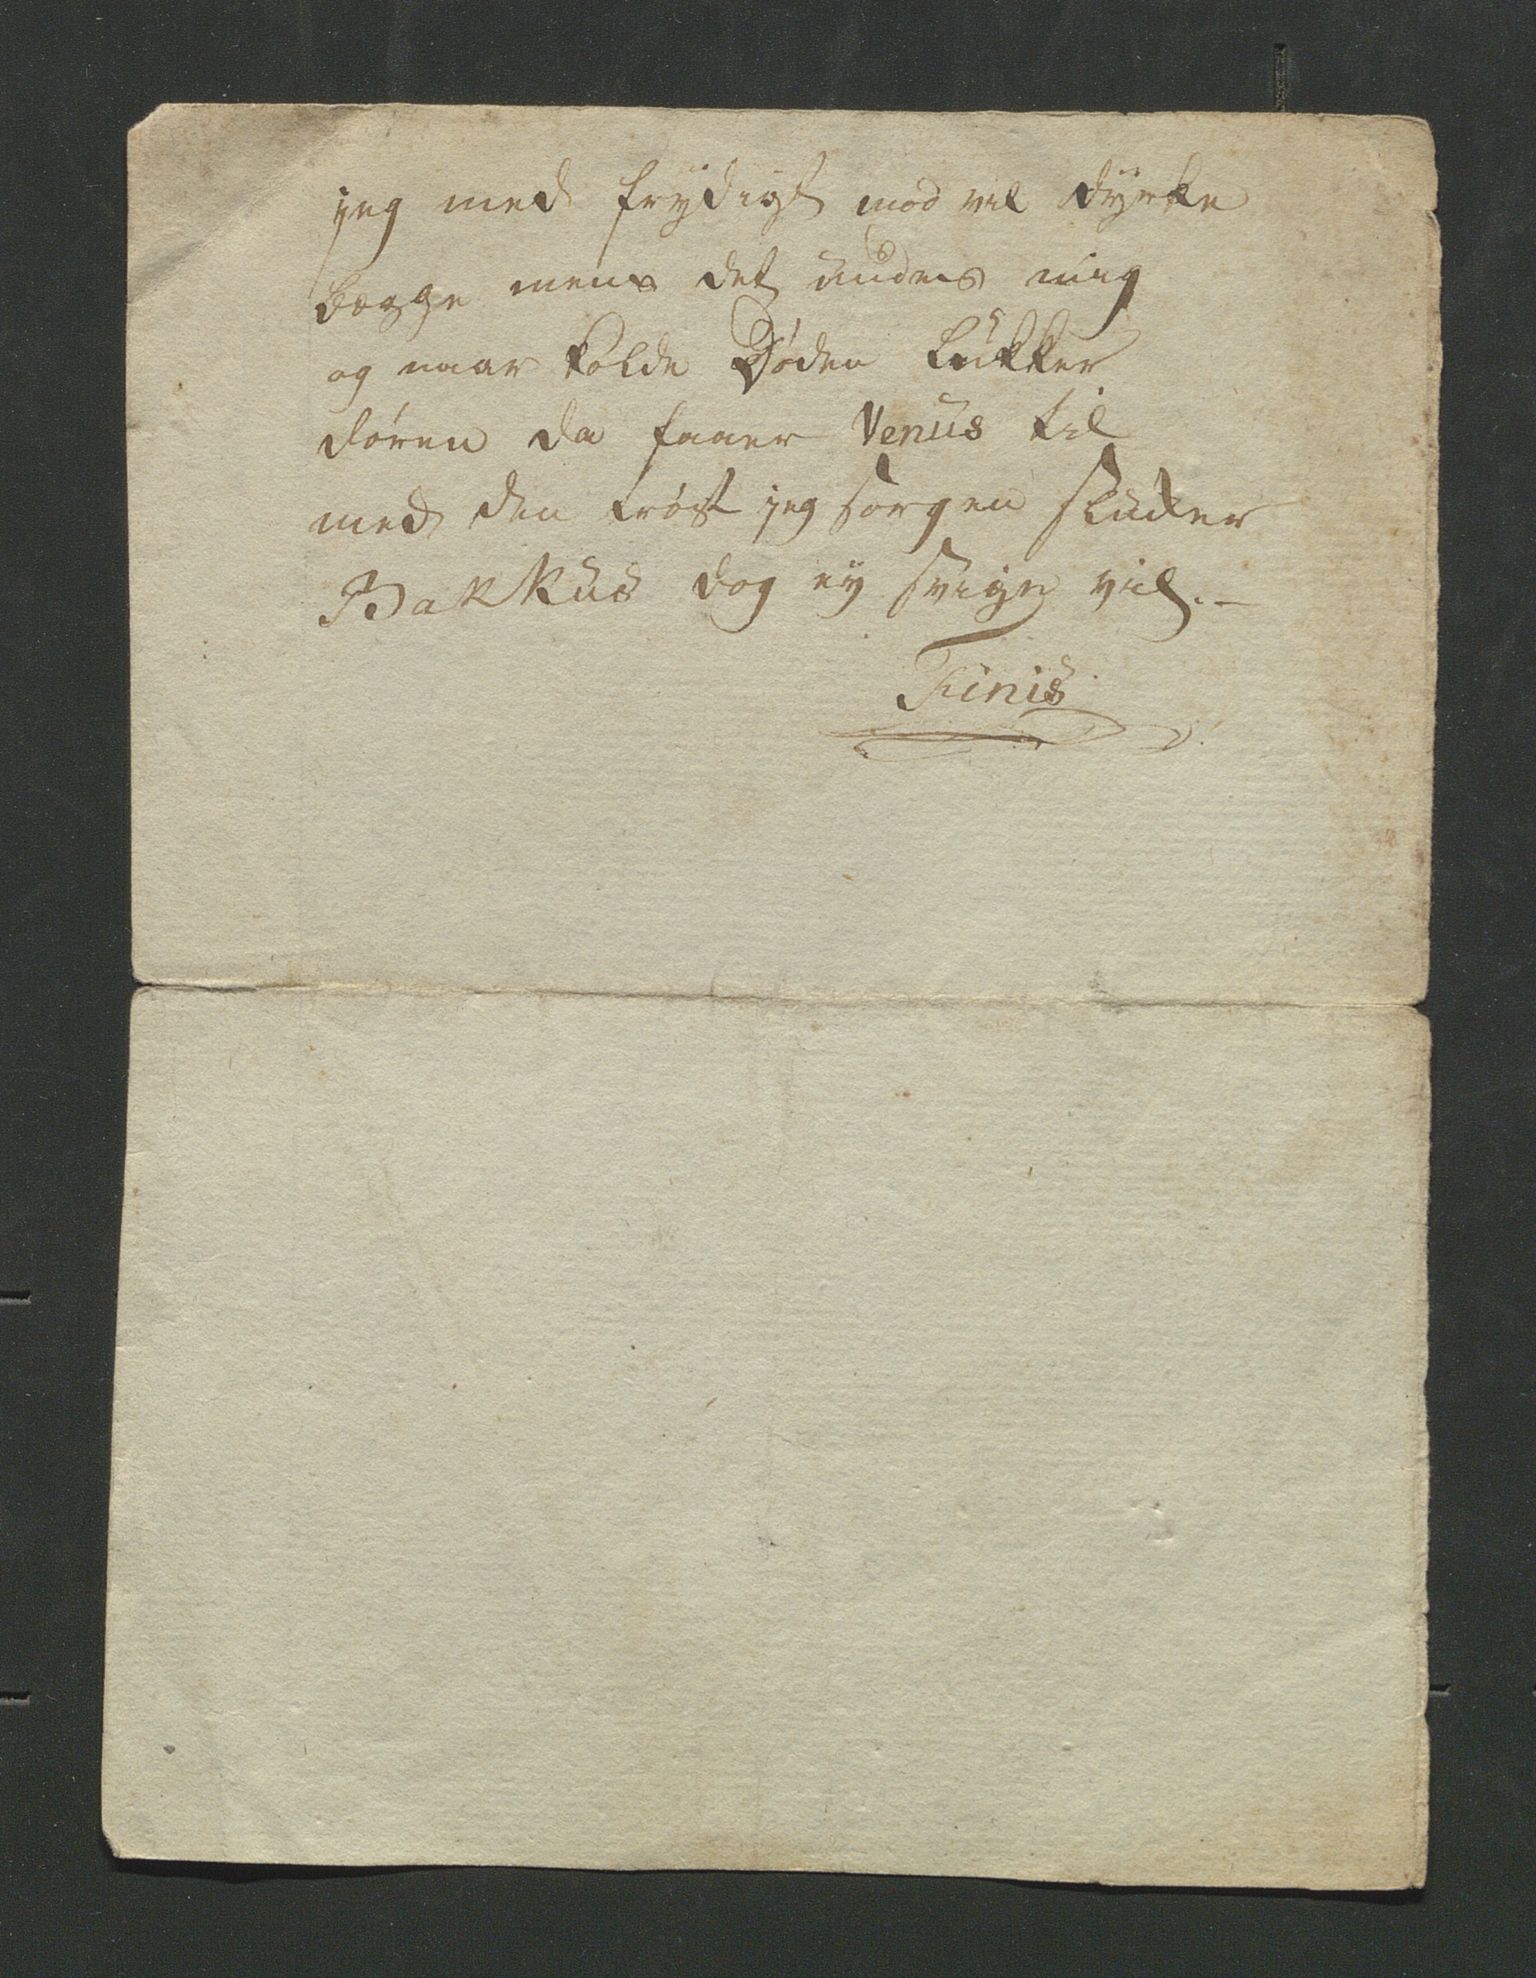 jeg med frydigt mod vil dyrke
begge mens det undes mig
og naar kolde Døden lukker
døren da faaer Venus til
med den trøst jeg sorgen slukker
Bakkus dog ey svige vil. –
Finis